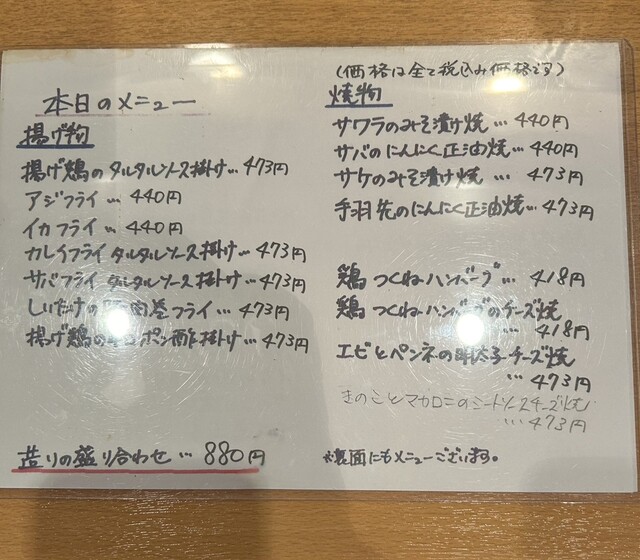 本日のメニュー
揚げ物
揚げ鶏のタルタルソース掛け…473円
アジフライ…440円
イカフライ…440円
カレイフライタルタルソース掛け…473円
サバフライタルタルソース掛け…473円
しいたけの 肉巻フライ…473円
揚げ鶏の ポン酢掛け…473円
造りの盛り合わせ…880円
(価格は全て税込み価格です)
焼物
サワラのみそ漬け焼…440円
サバのにんにく正油焼…440円
サケのみそ漬け焼…473円
手羽先のにんにく正油焼…473円
鶏つくねハンバーグ…418円
鶏つくねハンバーグのチーズ焼
…418円
エビとペンネの明太子チーズ焼
…473円
きのことマカロニのミートソースチーズ焼
…473円
※裏面にもメニューございます。